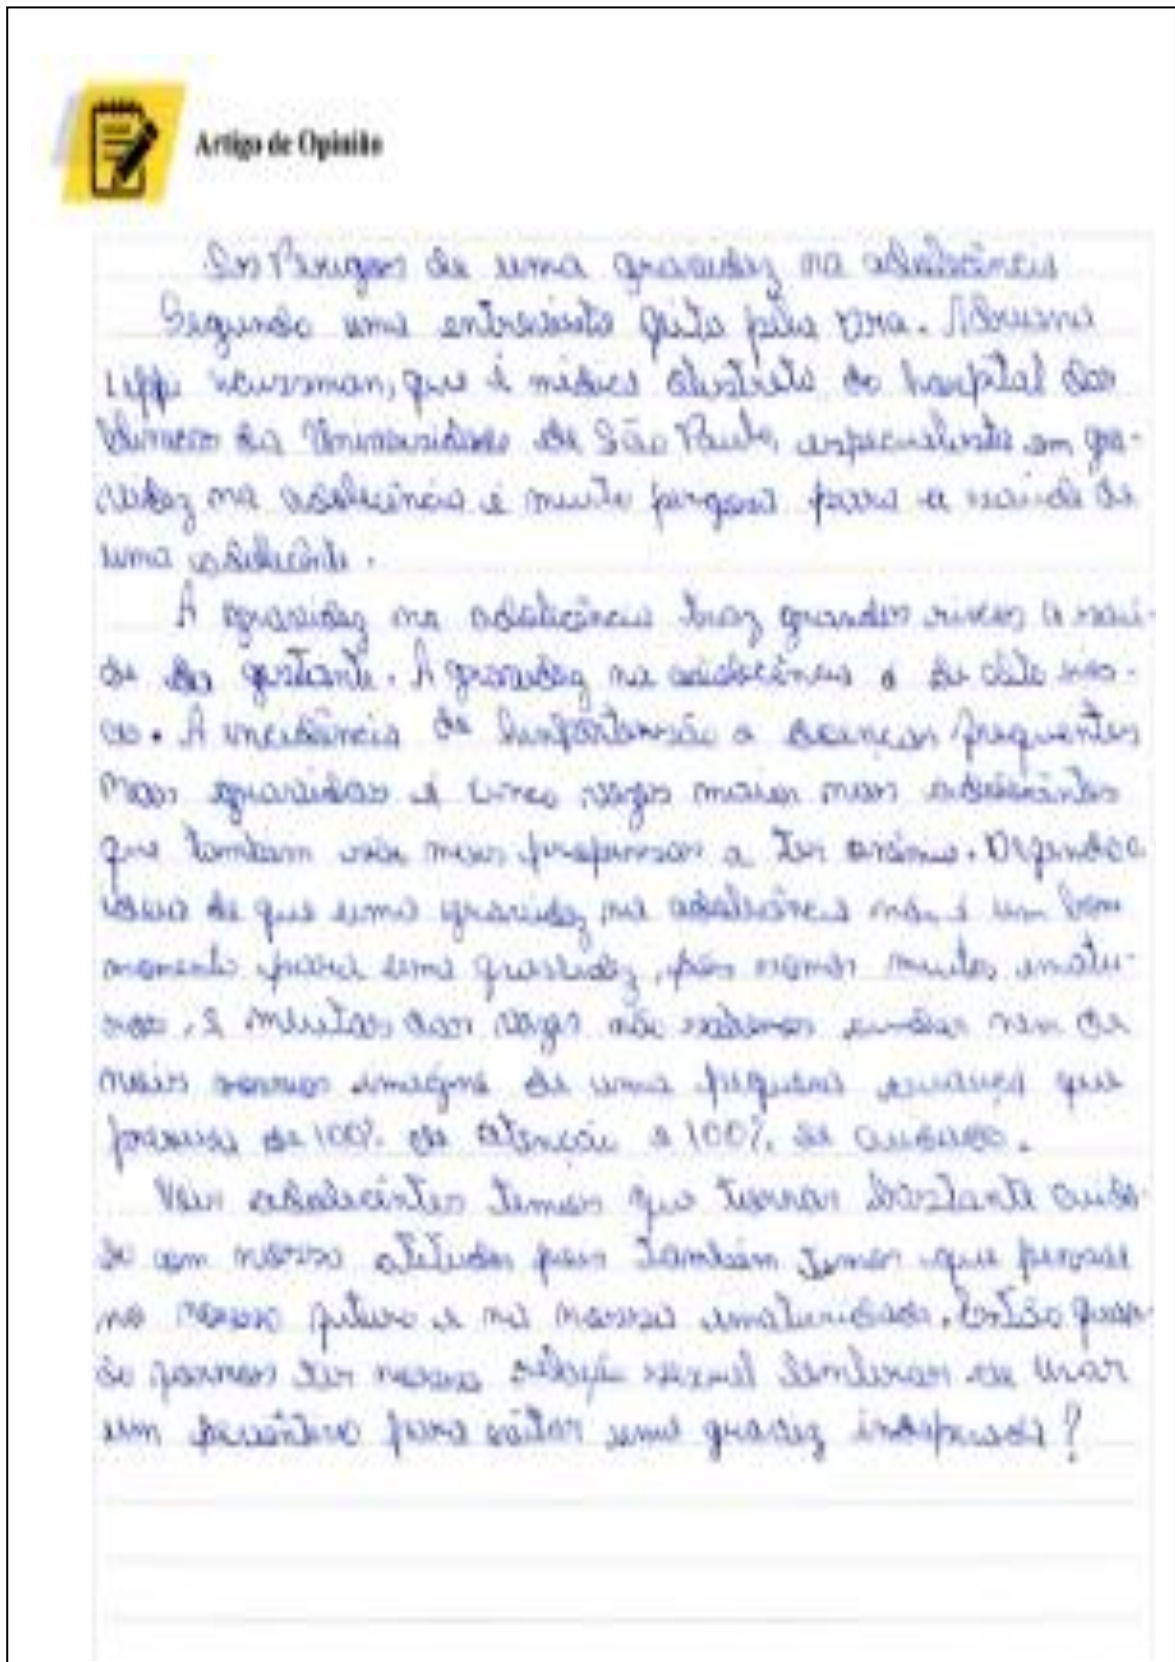 Artigo de Opinião
Os Perigos de uma gravidez na adolecência
Segundo uma entrevista feita pela Dra. Adriana
Lippi, que é médica obstreta do hospital das
Clinicas da Universidade de São Paulo, especialista em gra-
videz na adolecência é muito pergosa para a saúde de
uma adolecente.
A gravidez na adolecência traz grandes riscos a saú-
de da gestante. A gravidez na adolecência é de alto ris-
co. A incidência de a doenças frequentes
nas gravidas é cinco vezes maior nas adolecentes
que tambem são mais propensas a ter anemia. Defendo a
ideia de que uma gravidez na adolecência não é um bom
momento para uma gravidez, pois somos muitos imatu-
ros, e muitas das vezes não sabemos cuidar nem de
nois mesmos imagine de uma pequena criança que
precisa de 100% de atenção e 100% de cuidado.
Nois adolecentes temos que tomar bastante cuida-
do com nossas atitudes pois também temos que pensar
no nosso futuro e na nossa imaturidade. Então quan-
do formos ter nossa relação sexual lembrar de usar
um para evitar uma gravidez